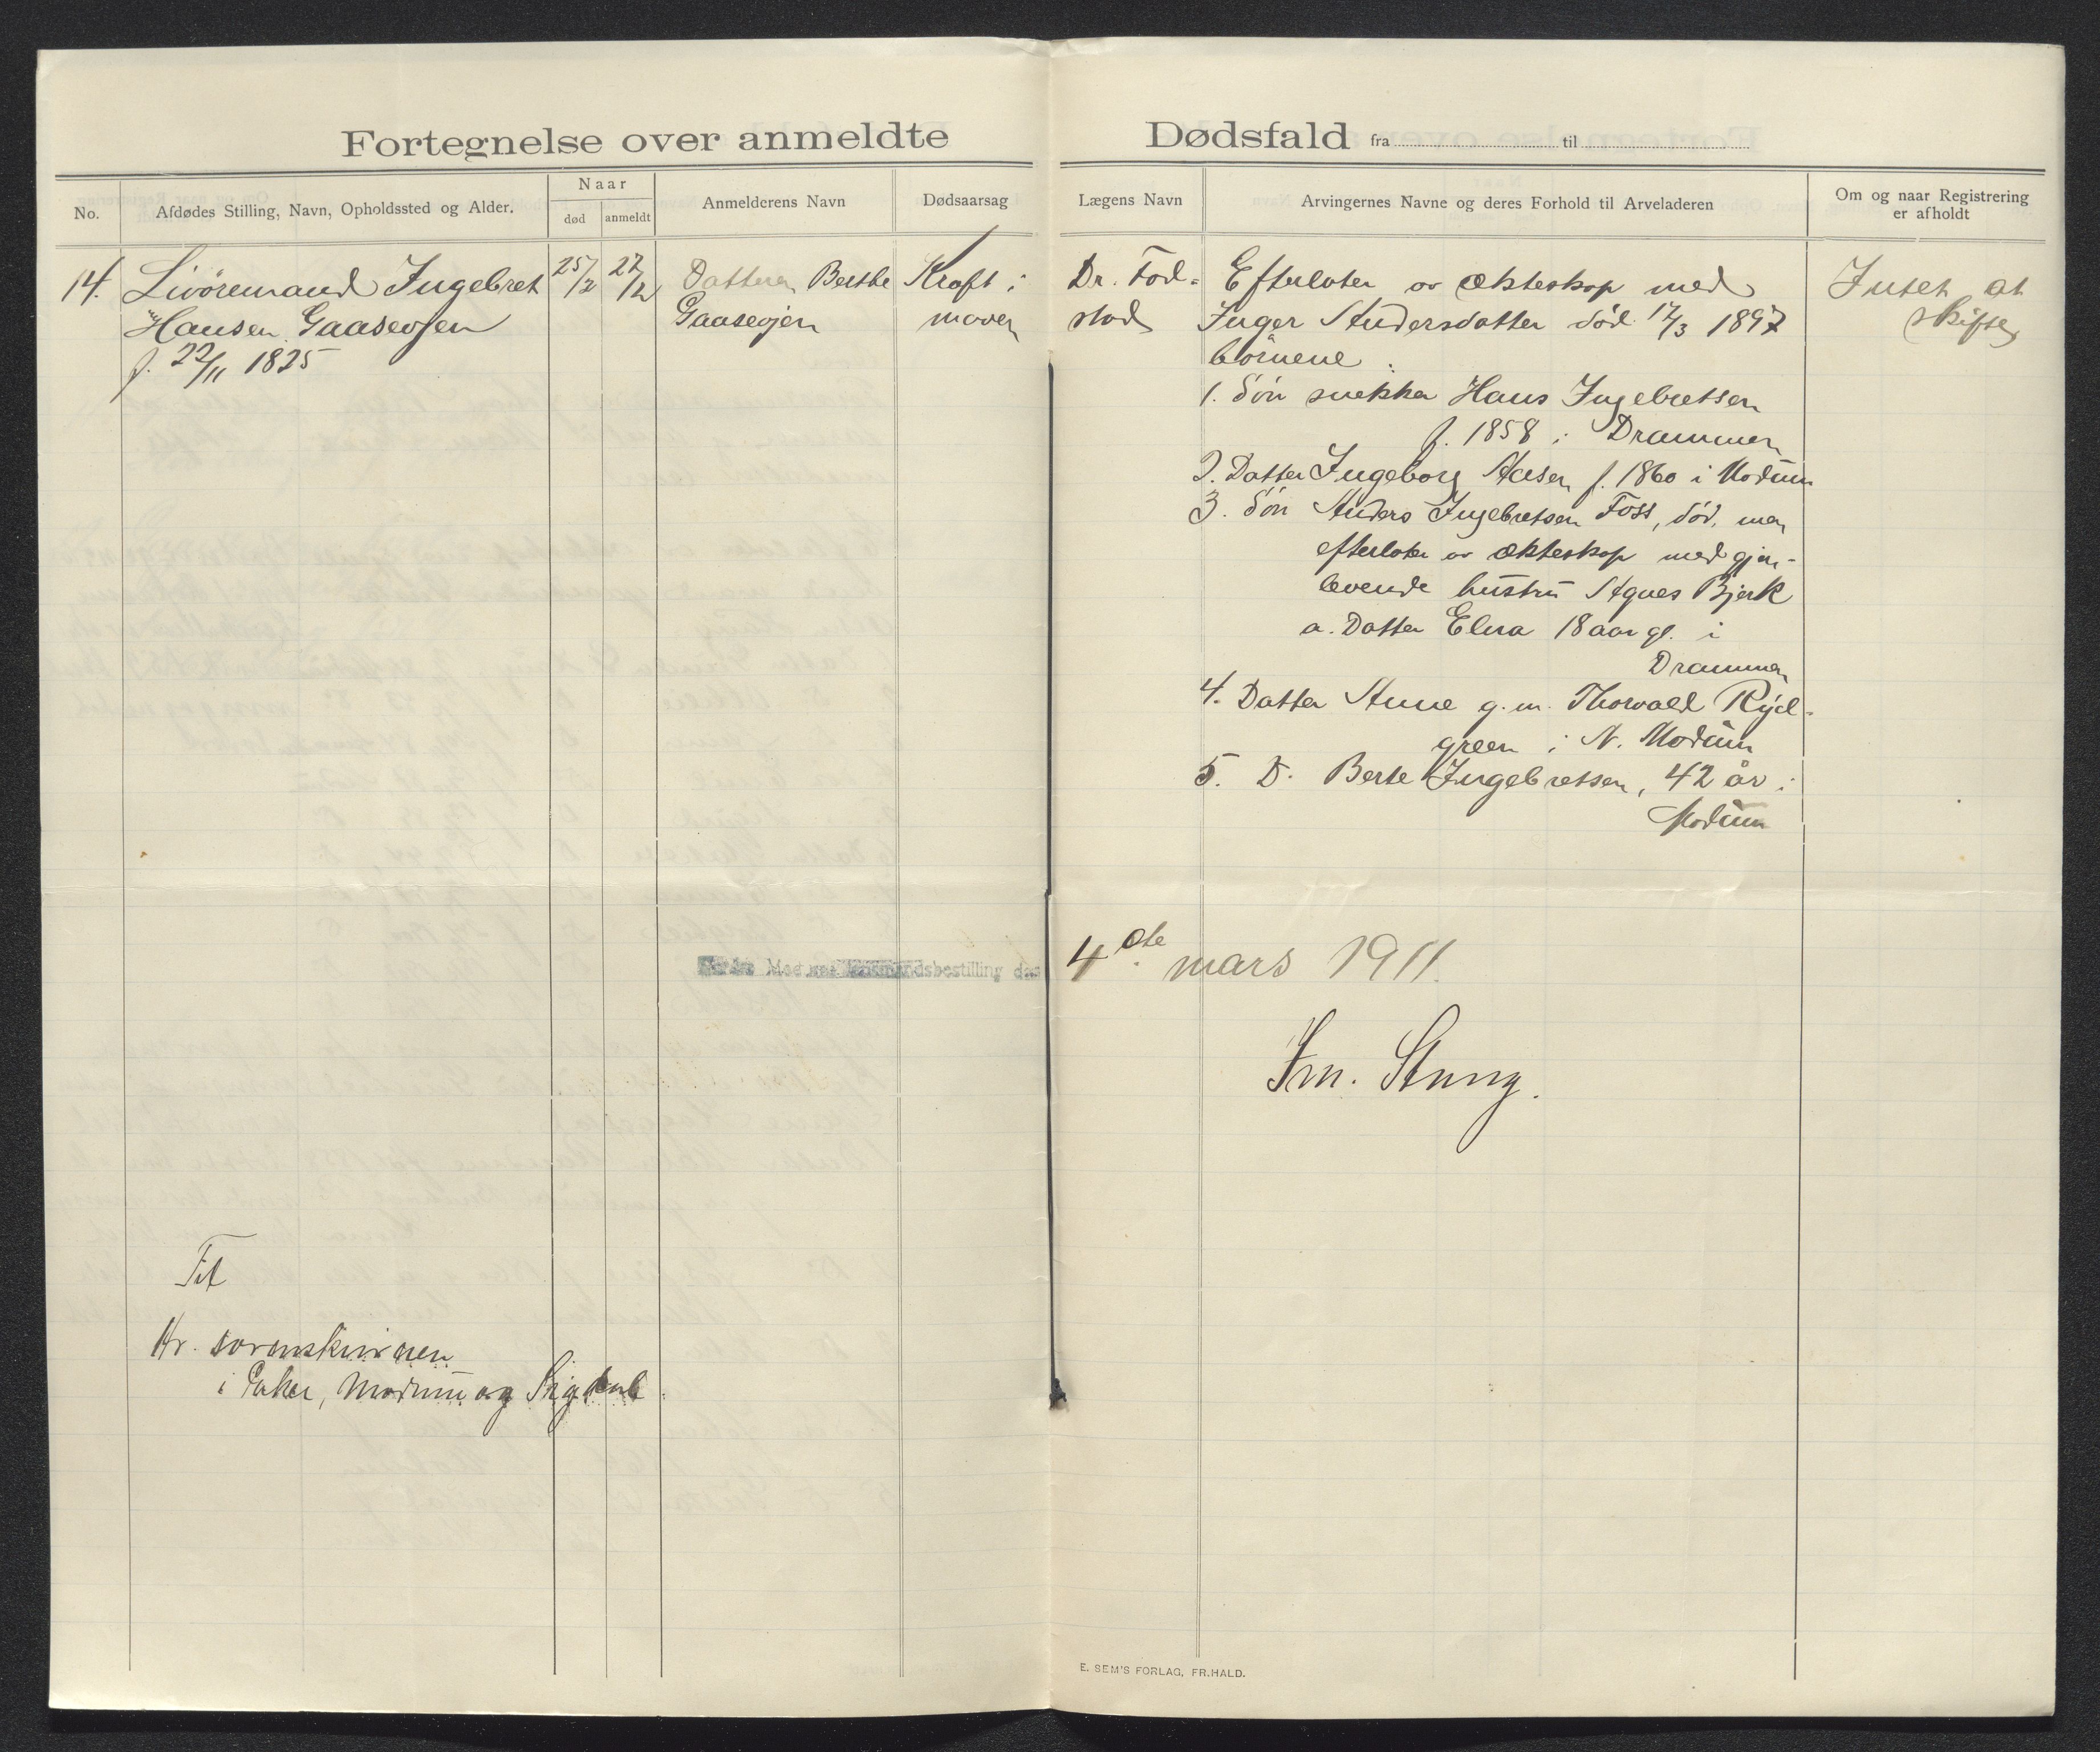 Fortegnelse over anmeldte Dødsfald fra til
No.
Afdødes Stilling, Navn, Opholdssted og Alder.
Naar
død
anmeldt
Anmelderens Navn
Dødsaarsag
Lægens Navn
Arvingernes Navne og deres Forhold til Arveladeren
Om og naar Registrering
er afholdt
14.
Livöremand Ingebret
Hansen Gaaseojen
f. 22/11 1825
25/2
27/2
Datteren Berthe
Gaaseojen
Kræft i
maven
Dr. Fod-
stad
Efterlater av ekteskap med
Inger Andersdatter död 17/3 1897
börnene
1. Sön snekker Hans Ingebretsen
f. 1858 i Drammen
2. Datter Ingeborg Aasen f. 1860 i Modum
3. Sön Anders Ingebretsen Foss, död, men
efterlater av ekteskap med gjen-
levende hustru Agnes Bjerk
a. Datter Elna 18 aar gl. i
Drammen
4. Datter Anne g.m. Thorvald Ryd-
green i N. Modum
5. D. Berte Ingebretsen, 42 år i
Modum
Intet at
skifte
Modum lensmandsbestilling den 4de mars 1911.
Til
Hr. sorenskriveren
i Eker, Modum og Sigdal
E. SEM'S FORLAG, FR.HALD.